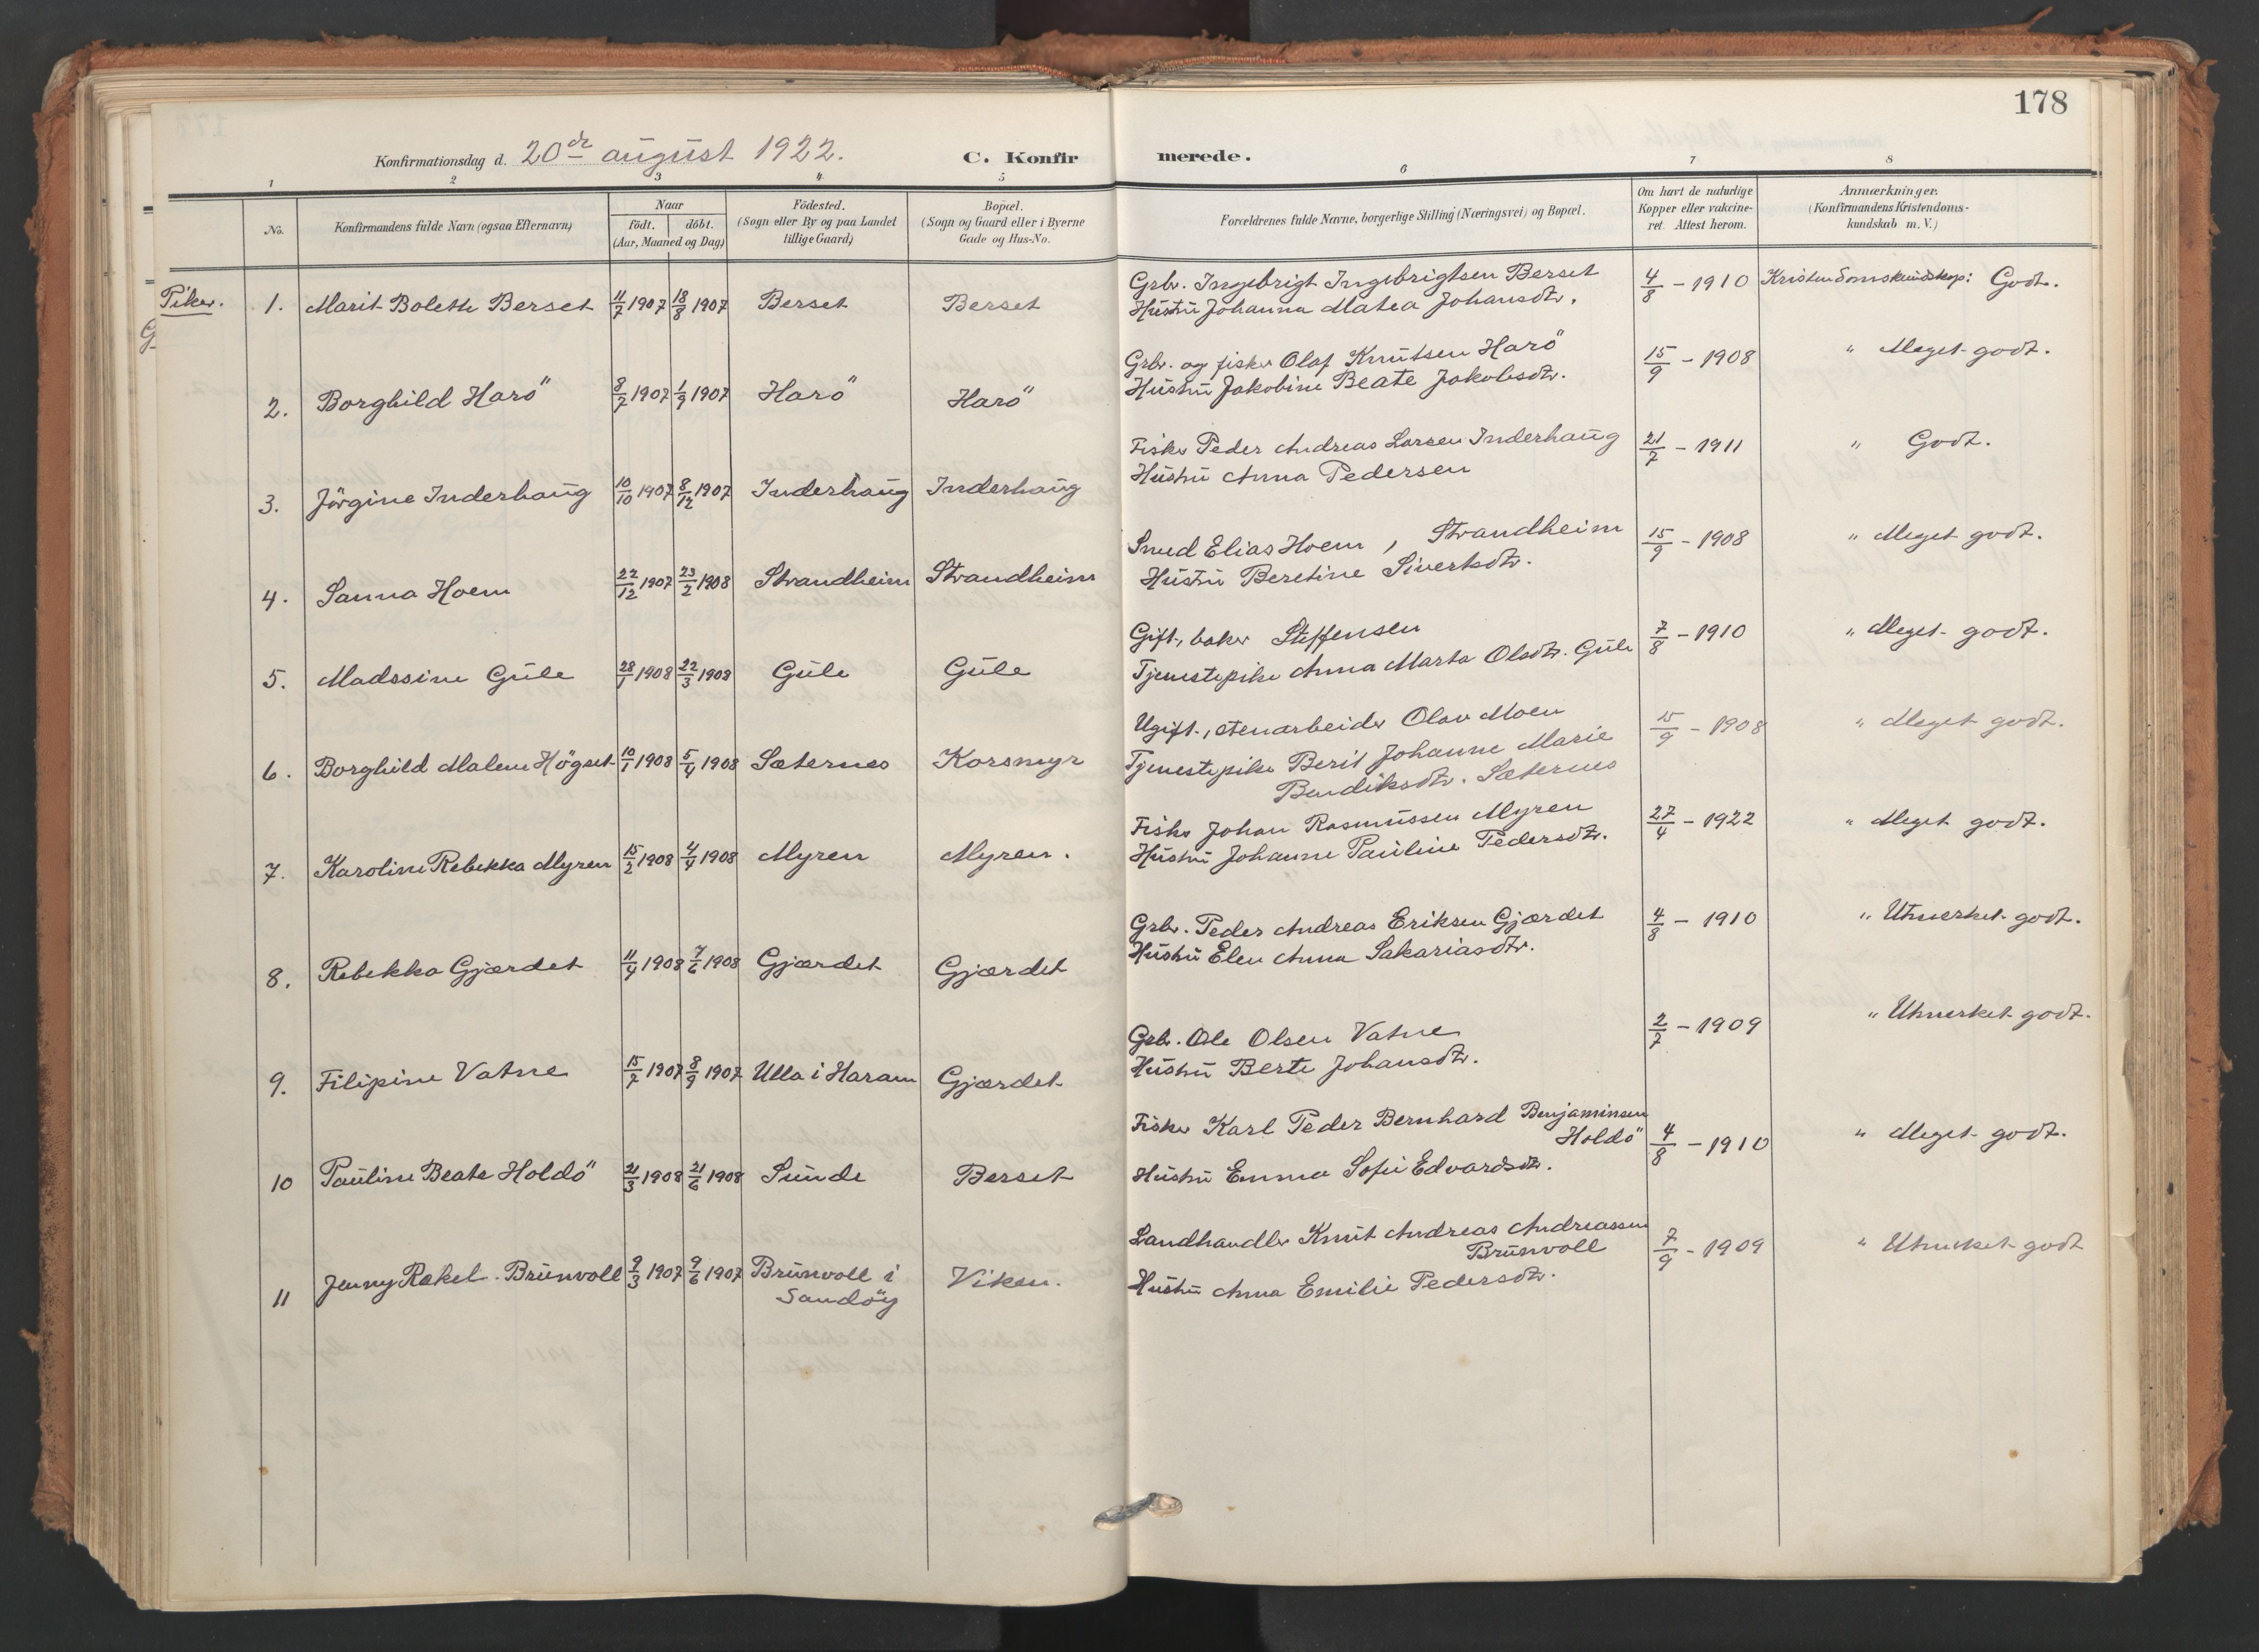 178
Konfirmationsdag d. 20de august 1922.
C. Konfirmerede.
1 2 3 4 5 6 7 8
No.
Konfirmandens fulde Navn (ogsaa Efternavn)
Naar
födt. döbt.
(Aar, Maaned og Dag)
Födested.
(Sogn eller By og paa Landet
tillige Gaard)
Bopæl.
(Sogn og Gaard eller i Byerne
Gade og Hus-No.
Forældrenes fulde Navne, borgerlige Stilling (Næringsvei) og Bopæl.
Om havt de naturlige
Kopper eller vakcine-
ret. Attest herom.
Anmærkninger.
(Konfirmandens Kristendoms-
kundskab m. V.)
Piker.
1. Marit Bolette Berset 11/7 1907 18/8 1907 Berset Berset
Grbr. Ingebrigt Ingebrigtsen Berset
Hustru Johanna Matea Johansdtr.
4/8 - 1910 Kristendomskundskap: Godt.
2. Borghild Harö 8/7 1907 1/9 1907 Harö Harö
Grbr. og fisker Olaf Knutsen Harö
Hustru Jakobine Beate Jakobsdtr.
15/9 - 1908 " Meget godt.
3. Jörgine Inderhaug 10/10 1907 8/12 1907 Inderhaug Inderhaug
Fisker Peder Andreas Larsen Inderhaug
Hustru Anna Pedersen
21/7 - 1911 " Godt.
4. Sanna Hoem 22/12 1907 23/2 1908 Strandheim Strandheim
Smed Elias Hoem, Strandheim
Hustru Beretine Sivertsdtr.
15/9 - 1908 " Meget godt.
5. Madssine Gule 28/1 1908 22/3 1908 Gule Gule
Gift, baker Steffensen
Tjenestepike Anna Marta Olsdtr. Gule
7/8 - 1910 " Meget godt.
6. Borghild Malene Högset 10/1 1908 5/4 1908 Sæternes Korsmyr
Ugift, stenarbeider Olav Moen
Tjenestepike Berit Johanne Marie
Bendiksdtr. Sæternes
15/9 - 1908 " Meget godt.
7. Karoline Rebekka Myren 15/2 1908 4/4 1908 Myren Myren.
Fisker Johan Rasmussen Myren
Hustru Johanne Pauline Pedersdtr.
27/4 - 1922 " Meget godt.
8. Rebekka Gjærdet 11/4 1908 7/6 1908 Gjærdet Gjærdet
Grbr. Peder Andreas Eriksen Gjærdet
Hustru Elen Anna Sakariasdtr.
4/8 - 1910 " Utmerket godt.
9. Filipine Vatne 15/7 1907 8/9 1907 Ulla i Haram Gjærdet
Grbr. Ole Olsen Vatne
Hustru Berte Johansdtr.
2/7 - 1909 " Utmerket godt.
10 Pauline Beate Holdö 21/3 1908 21/6 1908 Sunde Berset
Fisker Karl Peder Bernhard Benjaminsen
Holdö
Hustru Emma Sofie Edvardsdtr.
4/8 - 1910 " Meget godt.
11 Jenny Rakel Brunvoll 9/3 1907 9/6 1907 Brunvoll i
Sandöy
Viken.
Landhandler Knut Andreas Andreassen
Brunvoll
Hustru Anna Emilie Pedersdtr.
7/9 - 1909 " Utmerket godt